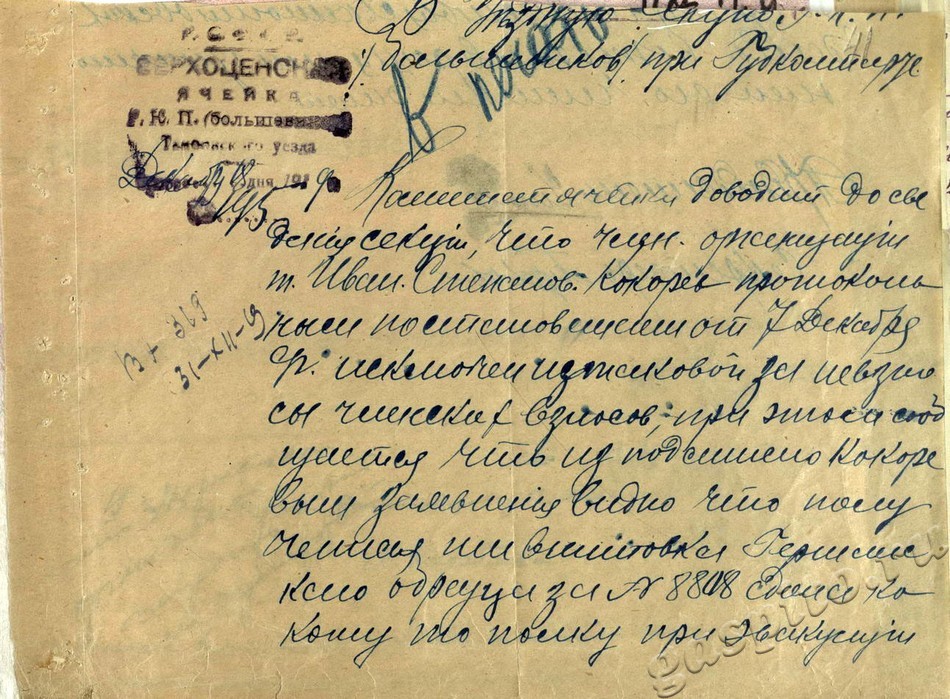 Р.С.Ф.С.Р.
ВЕРХОЦЕНСКАЯ
ЯЧЕЙКА
Р.К.П. (большевик
Тамбовского уезда
Декабря 18 дня 1919
№ 195
Вт 369
31-XII-19
В
секцию Р.К.П.
/большевиков/ при Губкомтруде
В
Комитет ячейки доводит до све
дения секции, что член. организации
т. Иван. Степанов. Кокорев протоколь
ным постановлением от 7 Декабря
с/г. исключен из таковой за невзно
сы членских взносов, при этом сооб
щается что из поданного Кокоре
вым заявления видно что полу
ченная им винтовка Германс
каго образца за № 8808 сдана ка
кому то полку при эвакуации
gaspito.ru